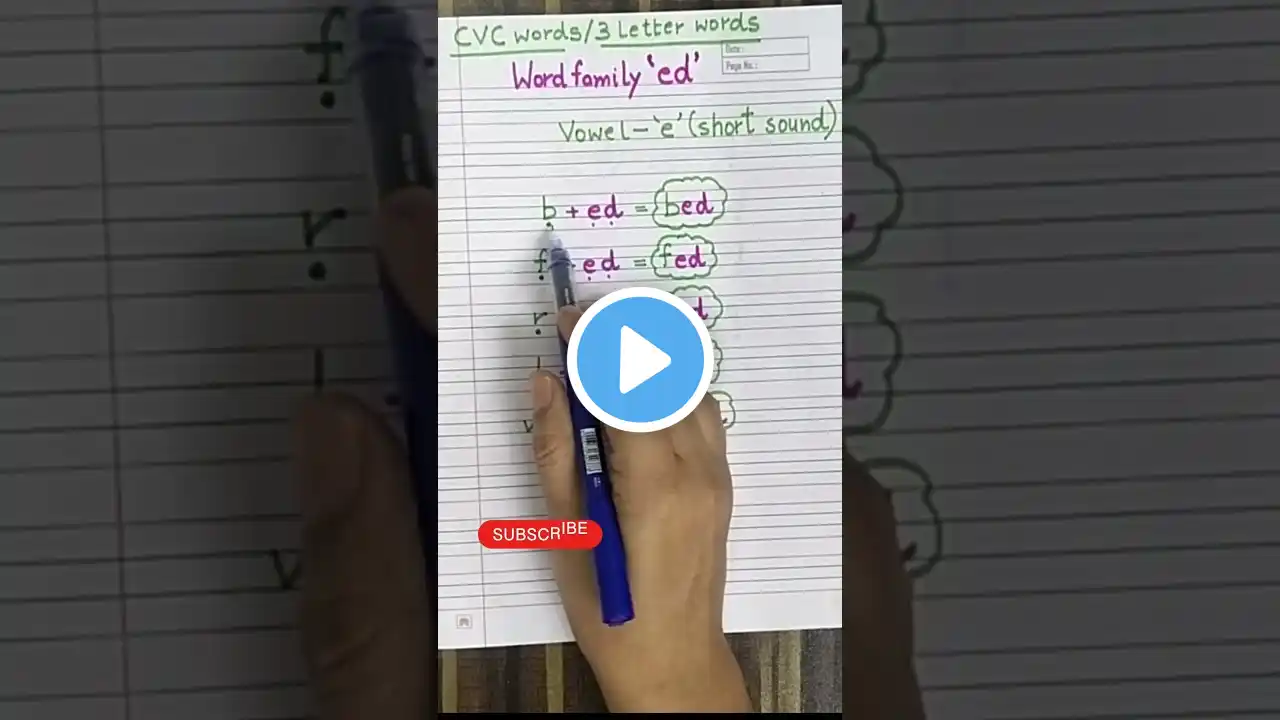 CVC words/3 Letter words
Date :
Page No. :
Word family 'ed'
Vowel - 'e' (short sound)
b + ed = bed
f + ed = fed
r d
SUBSCRIBE